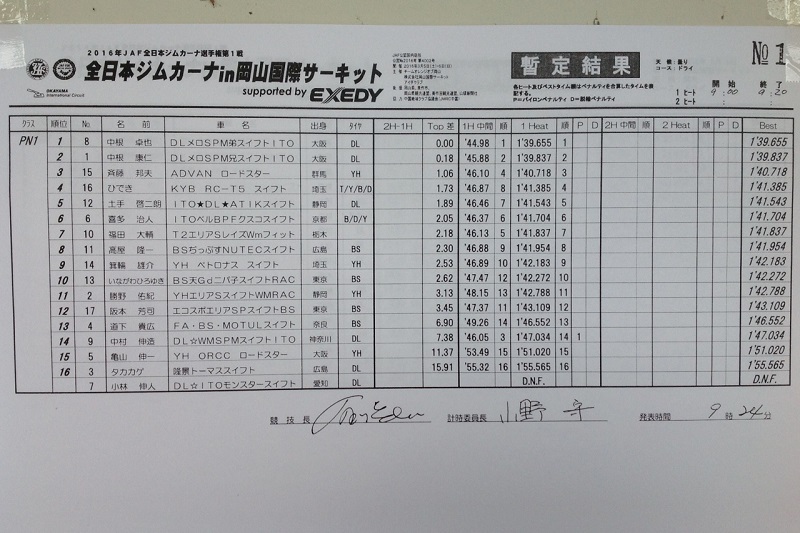 2016年JAF全日本ジムカーナ選手権第1戦
全日本ジムカーナin岡山国際サーキット
supported by EXEDY
OKAYAMA International Circuit
暫定結果
各ヒート及びベストタイム順はペナルティを合算したタイムを表記する。
P=パイロンペナルティ D=脱輪ペナルティ
天候：曇り
コース：ドライ
No 1
開始 終了
1ヒート 9:00 9:20
2ヒート :
クラス 順位 No 名前 車名 出身 タイヤ 2H-1H Top差 1H中間 順 1 Heat 順 P D 2H中間 順 2 Heat 順 P D Best
PN1 1 8 中根 卓也 DLメロSPM弟スイフトITO 大阪 DL 0.00 '44.98 1 1'39.655 1 1'39.655
2 1 中根 康仁 DLメロSPM兄スイフトITO 大阪 DL 0.18 '45.88 2 1'39.837 2 1'39.837
3 15 斉藤 邦夫 ADVAN ロードスター 群馬 YH 1.06 '46.10 4 1'40.718 3 1'40.718
4 16 ひでき KYB RC-T5 スイフト 埼玉 T/Y/B/D 1.73 '46.87 8 1'41.385 4 1'41.385
5 12 土手 啓二朗 ITO★DL★ATIKスイフト 静岡 DL 1.89 '46.46 7 1'41.543 5 1'41.543
6 6 喜多 治人 ITOベルBPFクスコスイフト 京都 B/D/Y 2.05 '46.37 6 1'41.704 6 1'41.704
7 10 福田 大輔 T2エリアSレイズWmフィット 栃木 2.18 '46.13 5 1'41.837 7 1'41.837
8 11 高屋 隆一 BSぢっぷすNUTECスイフト 広島 BS 2.30 '46.88 9 1'41.954 8 1'41.954
9 14 箕輪 雄介 YH ペトロナス スイフト 埼玉 YH 2.53 '46.89 10 1'42.183 9 1'42.183
10 13 いながわひろゆき BS天Gdニパ子スイフトRAC 東京 BS 2.62 '47.47 12 1'42.272 10 1'42.272
11 2 勝野 佑紀 YHエリアSスイフトWMRAC 静岡 YH 3.13 '48.15 13 1'42.788 11 1'42.788
12 17 阪本 芳司 エコスポエリアSPスイフトBS 東京 BS 3.45 '47.37 11 1'43.109 12 1'43.109
13 4 道下 貴広 FA・BS・MOTULスイフト 奈良 BS 6.90 '49.26 14 1'46.552 13 1'46.552
14 9 中村 伸造 DL☆WMSPMスイフトITO 神奈川 DL 7.38 '46.05 3 1'47.034 14 1 1'47.034
15 5 亀山 伸一 YH ORCC ロードスター 大阪 YH 11.37 '53.49 15 1'51.020 15 1'51.020
16 3 タカカゲ 隆景トーマススイフト 広島 DL 15.91 '55.32 16 1'55.565 16 1'55.565
7 小林 伸人 DL☆ITOモンスタースイフト 愛知 DL D.N.F. D.N.F.
競技長 計時委員長 小野 守 発表時間 9時24分